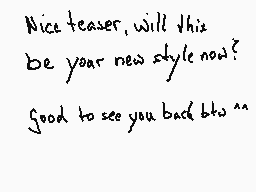 Nice teaser, will this
be your new style now?
Good to see you back btw ^^